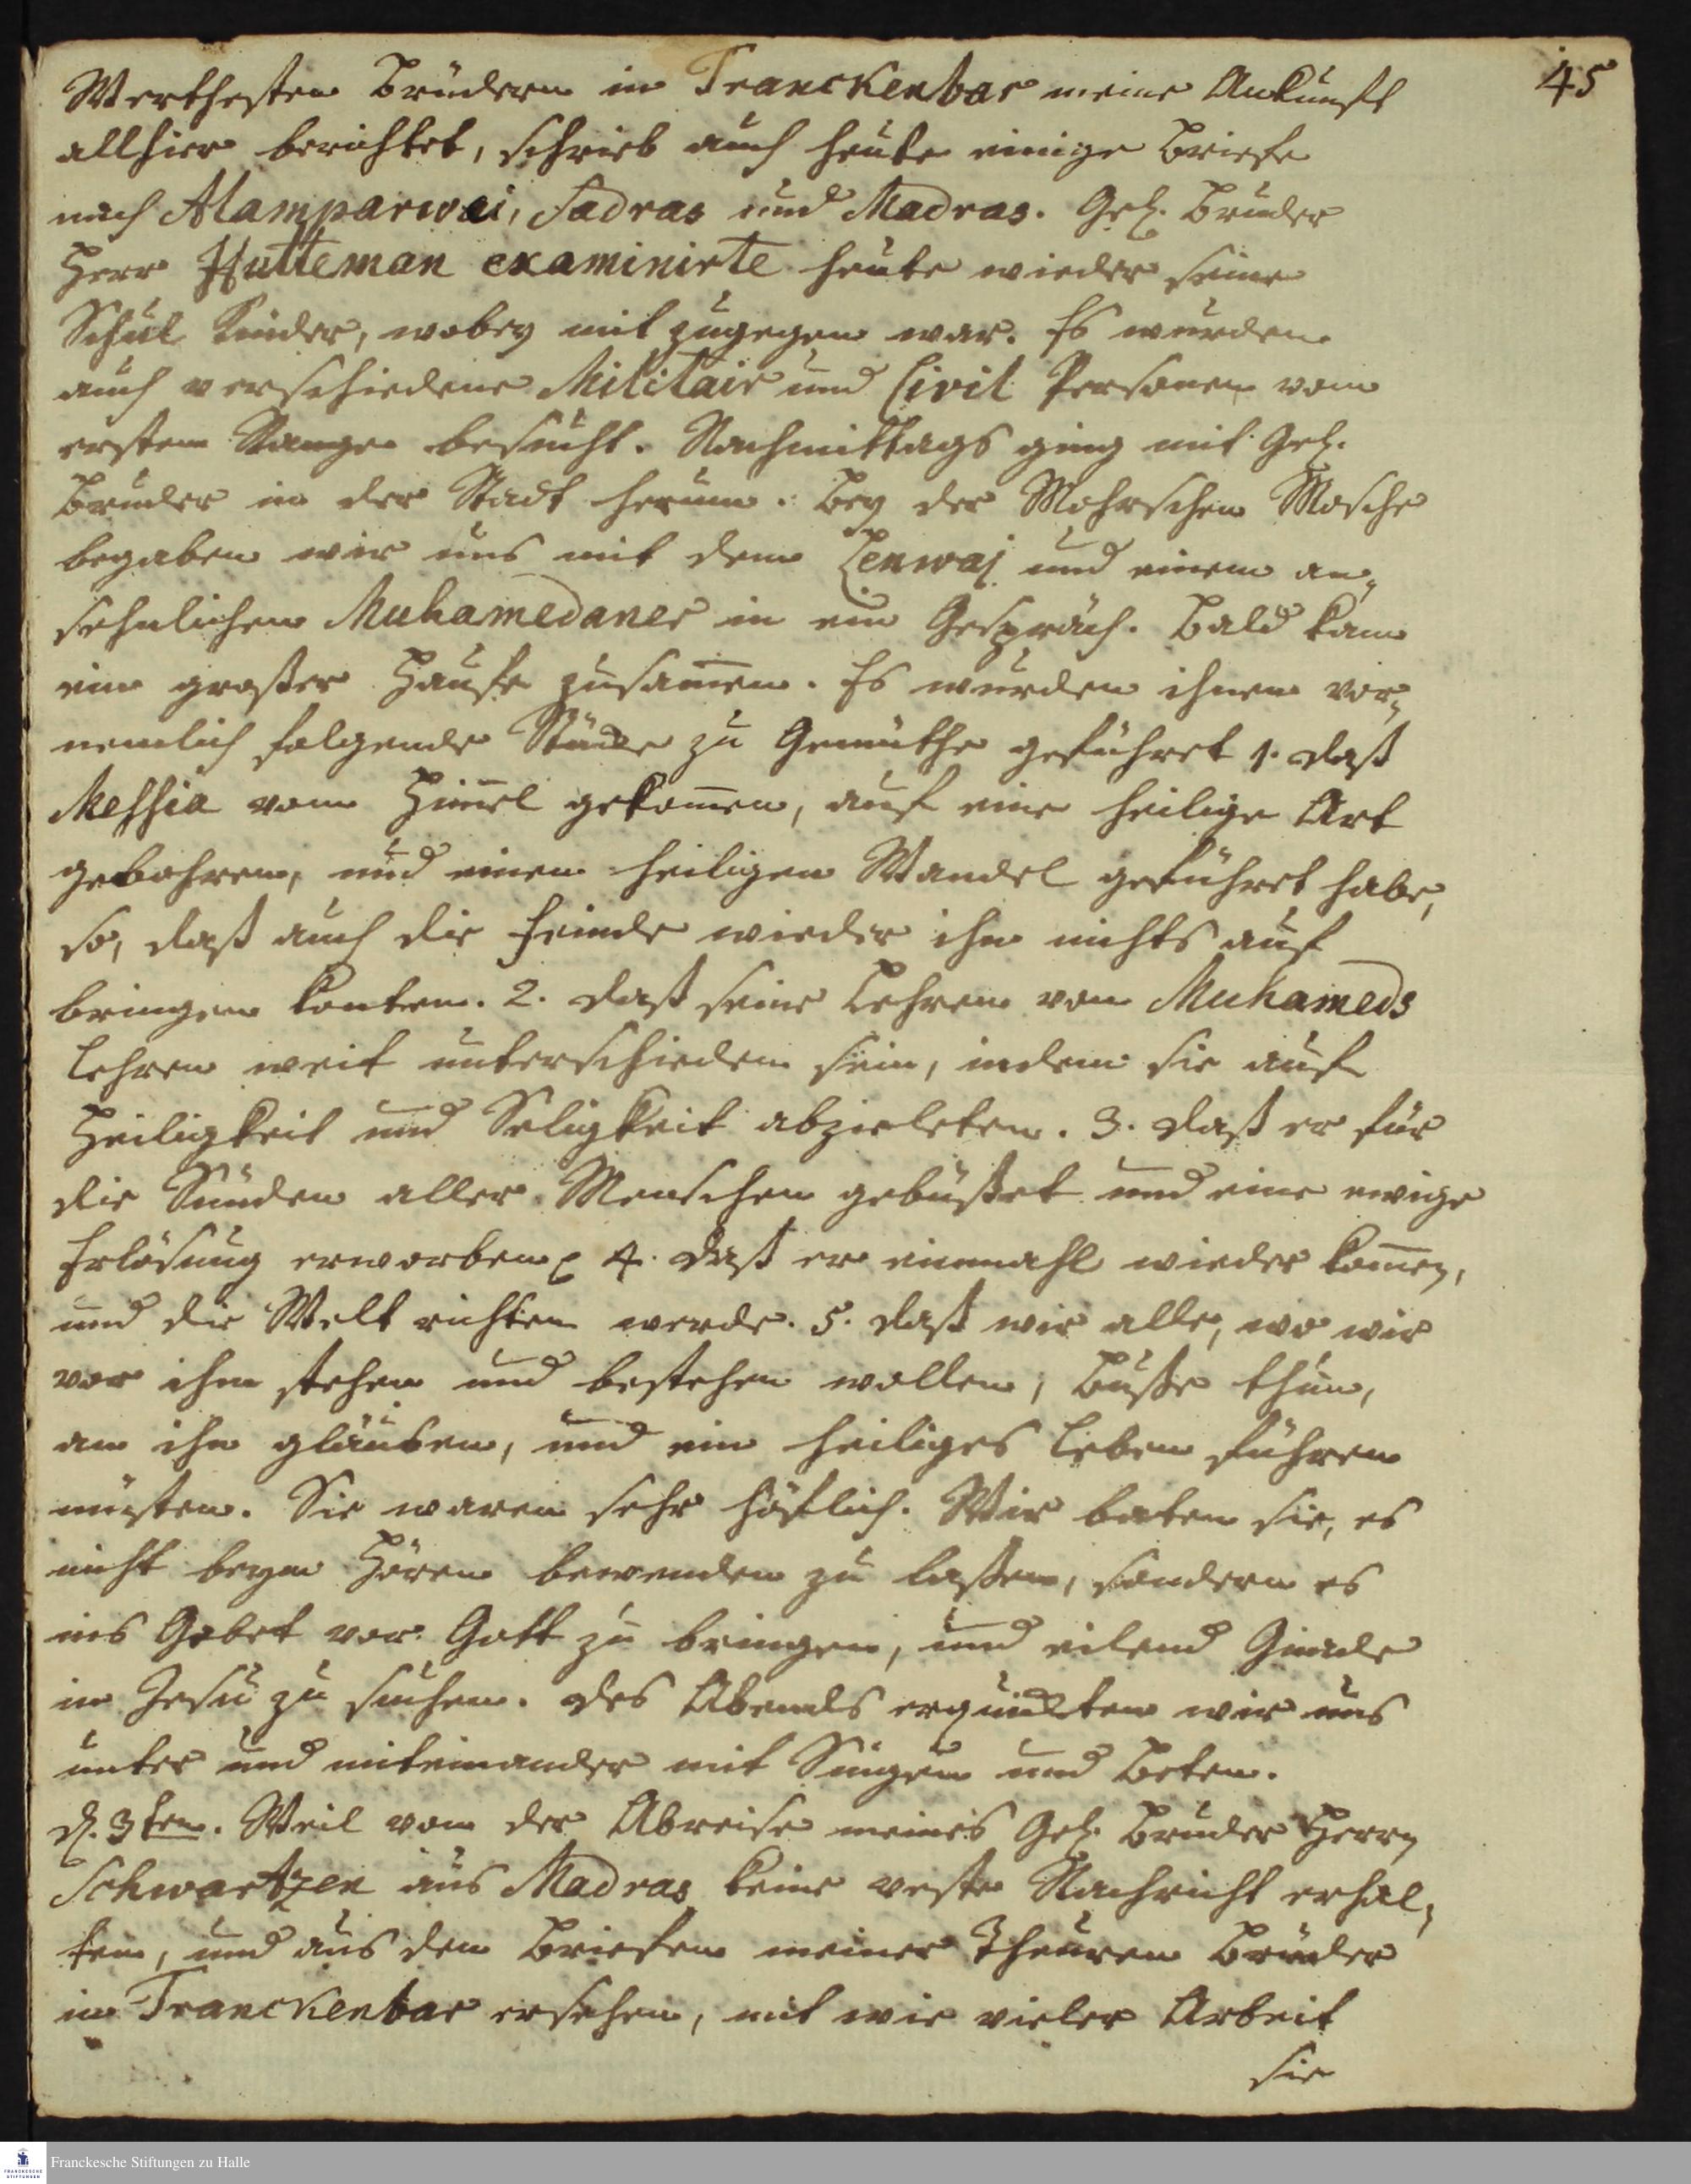 45
Werthesten Brüdern in Tranckenbar meine Ankunft
allhier berichtet, schrieb auch heute einige Briefe
nach Alamparwei, Sadras und Madras. Gel. Bruder
Herr Hutteman examinirte heute wieder seine
Schul Kinder, wobey mit zugegen war. Es wurden
auch verschiedene Militair und Civil Personen vom
ersten Range besucht. Nachmittags ging mit Gel.
Bruder in der Stadt herum. Bey der Mohrschen Mosche
begaben wir uns mit dem Lenwaj und einem an¬
sehnlichen Muhamedaner in ein Gespräch. Bald kam
ein großer Haufe zusam̅en. Es wurden ihnen vor¬
nemlich folgende Stücke zu Gemüthe geführet 1. daß
Messia vom Him̅el gekom̅en, auf eine heilige Art
gebohren, und einen heiligen Wandel geführet habe,
so, daß auch die Feinde wieder ihn nichts auf
bringen konten. 2. daß seine Lehren von Muhameds
Lehren weit unterschieden sein, indem sie auf
Heiligkeit und Seligkeit abzieleten. 3. daß er für
die Sünden aller Menschen gebüßet und eine ewige
Erlösung erworben 4. daß er einmahl wieder kom̅en,
und die Welt richten werde. 5. daß wir alle, wo wir
vor ihm stehen und bestehen wollen, Buße thun,
an ihn gläuben, und ein heiliges Leben führen
müsten. Sie waren sehr höflich. Wir baten sie, es
nicht beym Hören bewenden zu laßen, sondern es
ins Gebet vor Gott zu bringen, und eilend Gnade
in Jesu zu suchen. Des Abends erquickten wir uns
unter und miteinander mit Singen und Beten.
d. 3ten. Weil von der Abreise meines Gel. Bruder Herrn
Schwartzen aus Madras keine veste Nachricht erhal¬
ten, und aus den Briefen meiner Theuren Brüder
in Tranckenbar ersehen, mit wie vieler Arbeit
sie
FRANCKESCHE STIFTUNGEN
Franckesche Stiftungen zu Halle